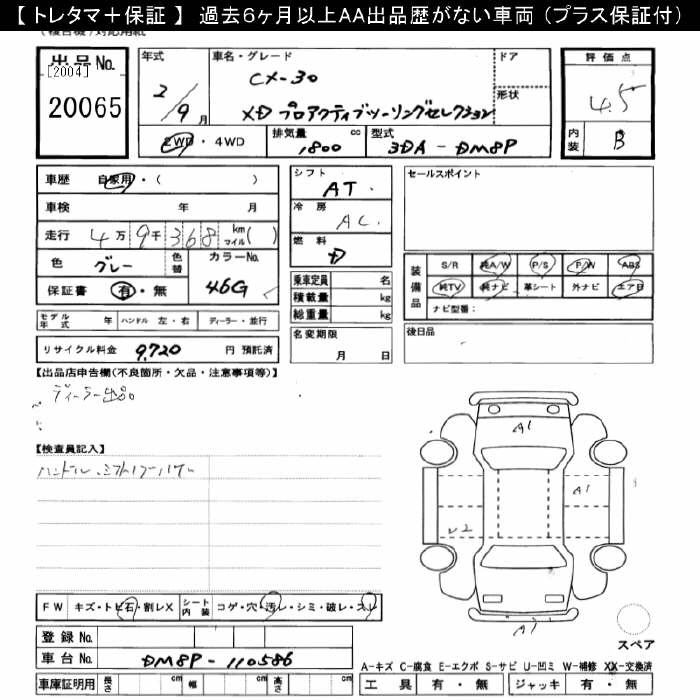 【 トレタマ＋保証 】 過去６ヶ月以上AA出品歴がない車両（プラス保証付）
出品No. [2004] 20065
年式 2/9月
車名・グレード CX-30 XD プロアクティブツーリングセレクション
ドア
形状
評価点 4.5
内装 B
2WD・4WD
排気量 1,800 cc
型式 3DA-DM8P
車歴 自家用・( )
シフト AT
セールスポイント
車検 年 月
冷房 AC
走行 4万9千368 km マイル( )
燃料 D
色 グレー 色替 カラーNo. 46G
保証書 有・無
乗車定員 名
積載量 kg
総重量 kg
装備品 S/R 純A/W P/S P/W ABS
純TV 純ナビ 革シート 外ナビ エアB
ナビ型番：
モデル年式 年 ハンドル 左・右 ディーラー・並行
名変期限 月 日
後日品
リサイクル料金 9,720 円 預託済
【出品店申告欄(不良箇所・欠品・注意事項等)】
ディーラー出品
【検査員記入】
A1
A1
A1
FW キズ・トビ石・割レX シート内装 コゲ・穴・汚レ・シミ・破レ・スレ
登録No.
車台No. DM8P-110586
スペア
A-キズ C-腐食 E-エクボ S-サビ U-凹ミ W-補修 XX-交換済
車庫証明用 長さ cm 幅 cm 高さ cm
工具 有・無 ジャッキ 有・無